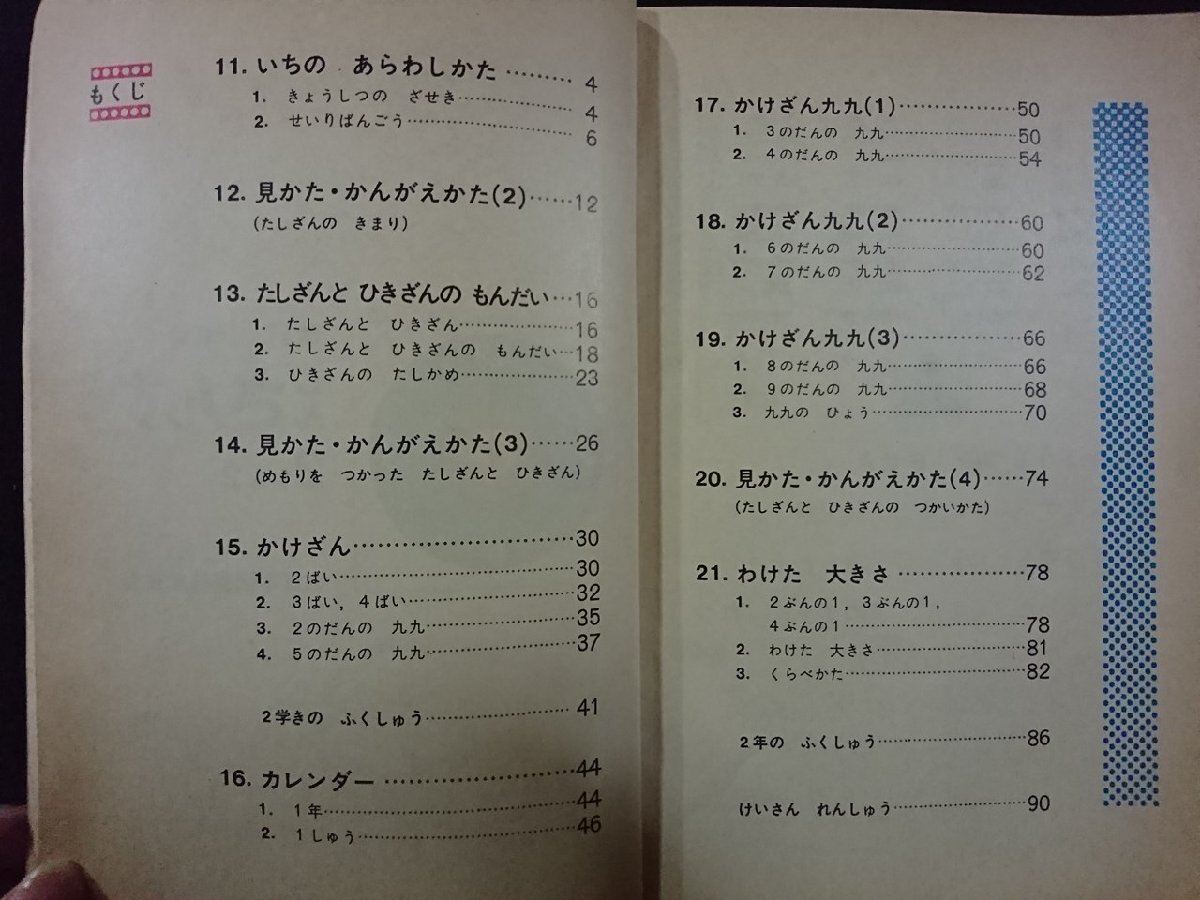 もくじ
11. いちの あらわしかた ……… 4
1. きょうしつの ざせき ……… 4
2. せいりばんごう ……… 6
12. 見かた・かんがえかた(2) …… 12
(たしざんの きまり)
13. たしざんと ひきざんの もんだい … 16
1. たしざんと ひきざん ……… 16
2. たしざんと ひきざんの もんだい … 18
3. ひきざんの たしかめ ……… 23
14. 見かた・かんがえかた(3) …… 26
(めもりを つかった たしざんと ひきざん)
15. かけざん ……… 30
1. 2ばい ……… 30
2. 3ばい, 4ばい ……… 32
3. 2のだんの 九九 ……… 35
4. 5のだんの 九九 ……… 37
2学きの ふくしゅう ……… 41
16. カレンダー ……… 44
1. 1年 ……… 44
2. 1しゅう ……… 46
17. かけざん九九(1) ……… 50
1. 3のだんの 九九 ……… 50
2. 4のだんの 九九 ……… 54
18. かけざん九九(2) ……… 60
1. 6のだんの 九九 ……… 60
2. 7のだんの 九九 ……… 62
19. かけざん九九(3) ……… 66
1. 8のだんの 九九 ……… 66
2. 9のだんの 九九 ……… 68
3. 九九の ひょう ……… 70
20. 見かた・かんがえかた(4) …… 74
(たしざんと ひきざんの つかいかた)
21. わけた 大きさ ……… 78
1. 2ぶんの1, 3ぶんの1,
4ぶんの1 ……… 78
2. わけた 大きさ ……… 81
3. くらべかた ……… 82
2年の ふくしゅう ……… 86
けいさん れんしゅう ……… 90